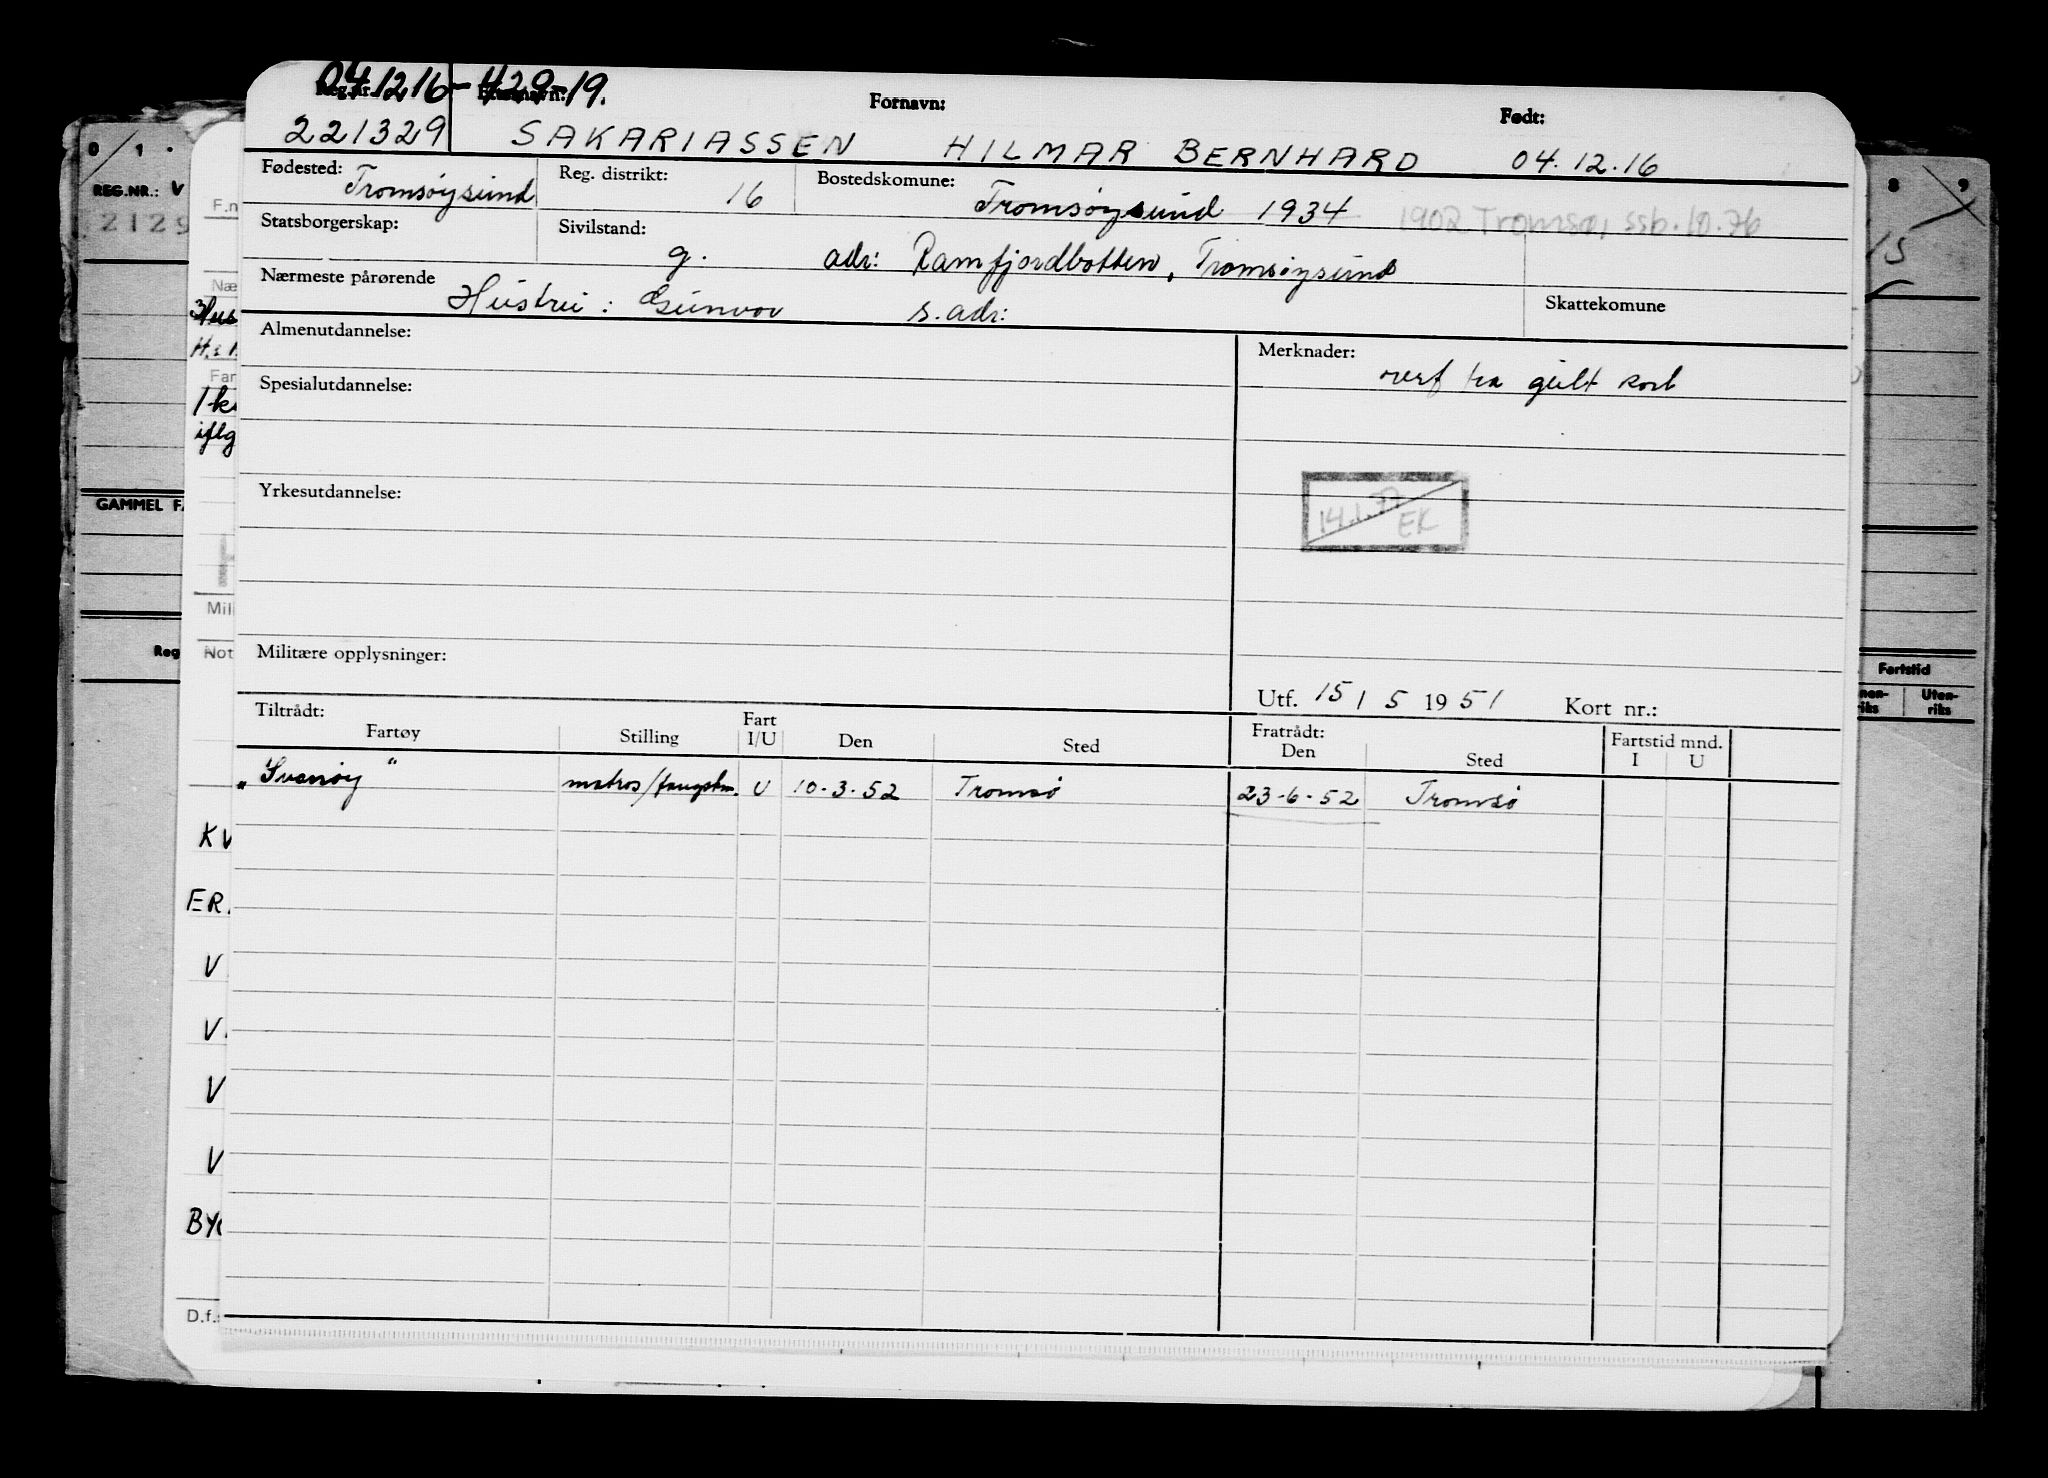 04 12 16 - 429-19.
Reg.nr. Etternavn: Fornavn: Født:
221329 SAKARIASSEN HILMAR BERNHARD 04.12.16
Fødested: Tromsøysund Reg. distrikt: 16 Bostedskomune: Tromsøysund 1934 1902 Tromsø, ssb. 10.76
Statsborgerskap: Sivilstand: g. adr: Ramfjordbotten, Tromsøysund
Nærmeste pårørende Hustru: Gunvor s. adr: Skattekomune
Almenutdannelse: Merknader: overf fra gult kort
Spesialutdannelse:
Yrkesutdannelse: 14.1.77 EK
Militære opplysninger:
Utf. 15 / 5 1951 Kort nr.:
Tiltrådt: Fratrådt: Fartstid mnd.
Fartøy Stilling Fart I/U Den Sted Den Sted I U
„Svanøy" matros/fangstm. U 10-3-52 Tromsø 23-6-52 Tromsø
0 1 .
REG.NR.: V
2129
GAMMEL FA
Reg
F.n
Næ
Hus
H.s.
Far
1 k
iflg
Mil
Not
KV
ER.
V
V.
V
V
BYG
D.f.
8 9
15
Fartstid
nen-riks Uten-riks